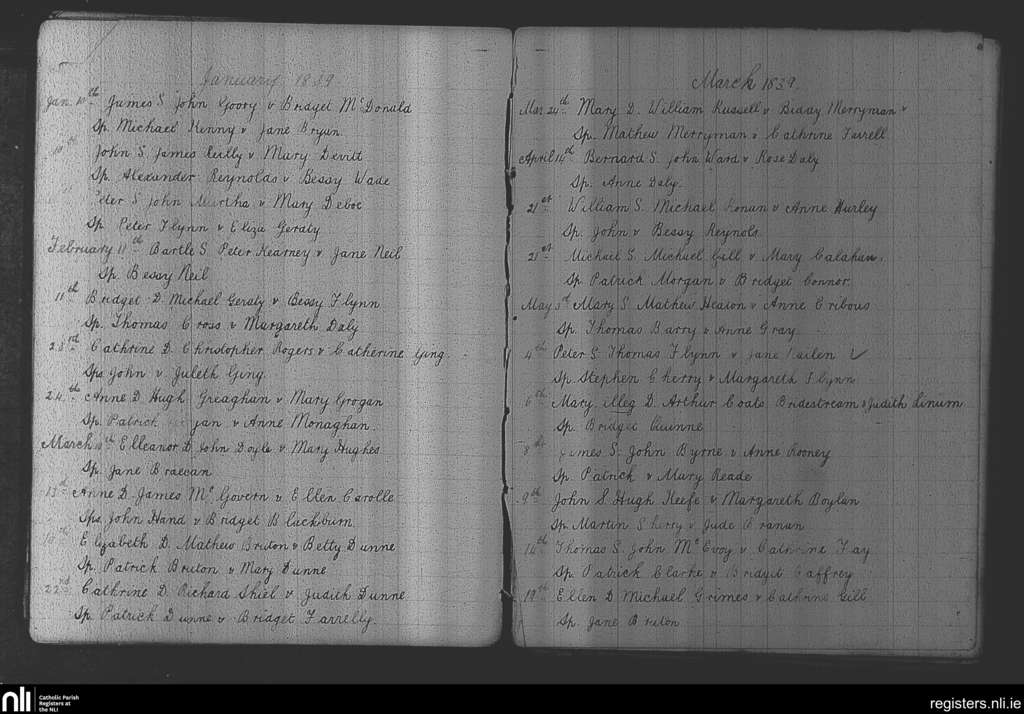 January 1839.
Jan. 10th James S. John Goory v Bridget McDonald
Sp. Michael Kenny v Jane Bryan.
10th John S. James Reilly v Mary Devitt
Sp. Alexander Reynolds v Bessy Wade
Peter S John Murtha v Mary Deboe
Sp Peter Flynn v Eliza Geraty
February 11th Bartle S. Peter Kearney v Jane Neil
Sp. Bessy Neil
11th Bridget D. Michael Geraty v Bessy Flynn
Sp. Thomas Cross v Margareth Daly
23rd Cathrine D. Christopher Rogers v Catherine Ging.
Sps John v Juleth Ging.
24th Anne D Hugh Greaghan v Mary Grogan
Sp. Patrick v Anne Monaghan.
March 10th Elleanor D. John Doyle v Mary Hughes
Sp. Jane Braecan
13th Anne D. James Mc Govern v Ellen Carolle
Sps. John Hand v Bridget Blackburn.
Elizabeth D. Mathew Bruton v Betty Dunne
Sp. Patrick Bruton v Mary Dunne
22nd Cathrine D. Richard Shiel v Judith Dunne
Sp. Patrick Dunne v Bridget Farrelly.
March 1839.
Mar. 24th Mary D. William Russell v Biddy Merryman
Sp. Mathew Merryman v Cathrine Farrell
April 14th Bernard S. John Ward v Rose Daly
Sp. Anne Daly.
21st William S. Michael v Anne Hurley
Sp. John v Bessy Reynols
21st Michael S. Michael Gill v Mary Calahan.
Sp Patrick Morgan v Bridget Connor.
May 3rd Mary S. Mathew Heaton v Anne Cribous
Sp. Thomas Barry v Anne Gray
4th Peter S. Thomas Flynn v Jane
Sp. Stephen Cherry v Margareth Flynn
6th Mary, illeg D. Arthur Coats Bridestream & Judith Linum
Sp. Bridget Quinne
8th James S. John Byrne v Anne Rooney
Sp. Patrick v Mary Reade
9th John S. Hugh Keefe v Margareth Boylan
Sp. Martin Sherry v Jude Cranan
14th Thomas S. John Mc Evoy v Cathrine Fay
Sp. Patrick Clarke v Bridget Caffrey
19th Ellen D. Michael Grimes v Cathrine Gill
Sp. Jane Bruton
nli Catholic Parish
Registers at
the NLI
registers.nli.ie